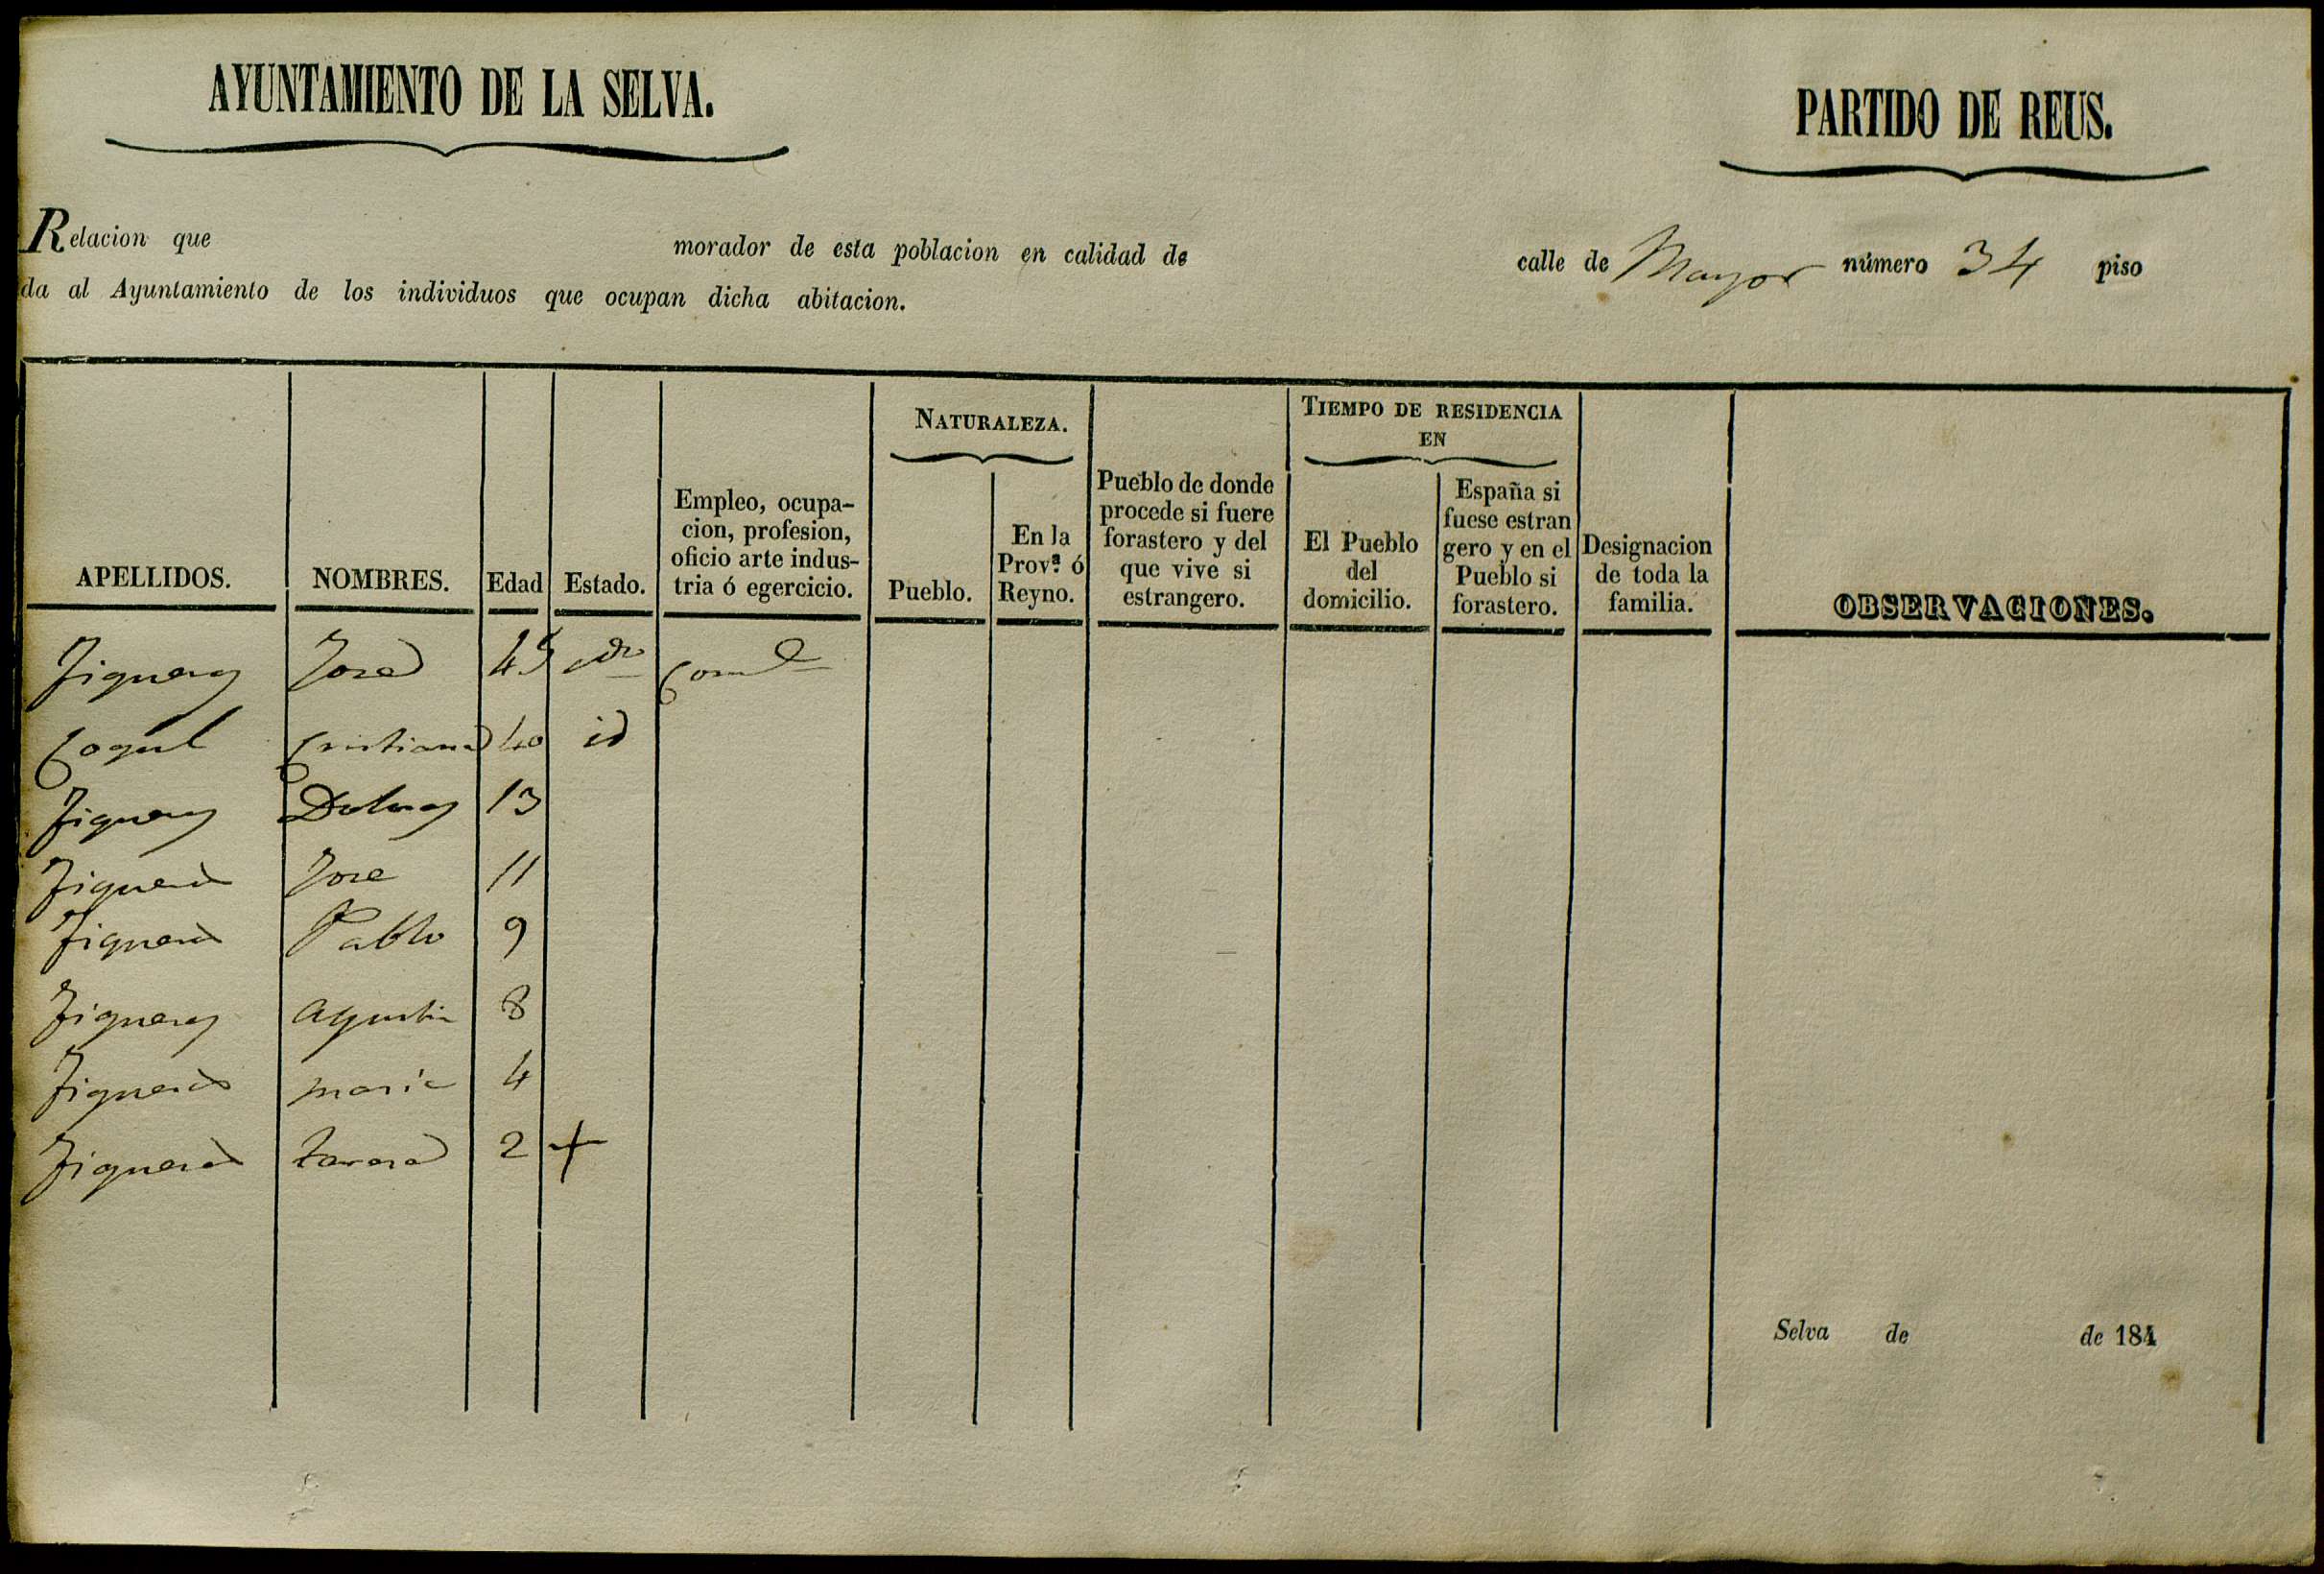 AYUNTAMIENTO DE LA SELVA.
PARTIDO DE REUS.
Relacion que morador de esta poblacion en calidad de calle de Mayor número 34 piso
da al Ayuntamiento de los individuos que ocupan dicha abitacion.
APELLIDOS.
NOMBRES.
Edad
Estado.
Empleo, ocupa-
cion, profesion,
oficio arte indus-
tria ó egercicio.
NATURALEZA.
Pueblo.
En la
Provª ó
Reyno.
Pueblo de donde
procede si fuere
forastero y del
que vive si
estrangero.
TIEMPO DE RESIDENCIA
EN
El Pueblo
del
domicilio.
España si
fuese estran
gero y en el
Pueblo si
forastero.
Designacion
de toda la
familia.
OBSERVACIONES.
Figueras Jose 45
Cogul Cristiana 40 id
Figueras Dolores 13
Figueras Jose 11
Figueras Pablo 9
Figueras Agustin 8
Figueras maria 4
Figueras 2 +
Selva de de 184